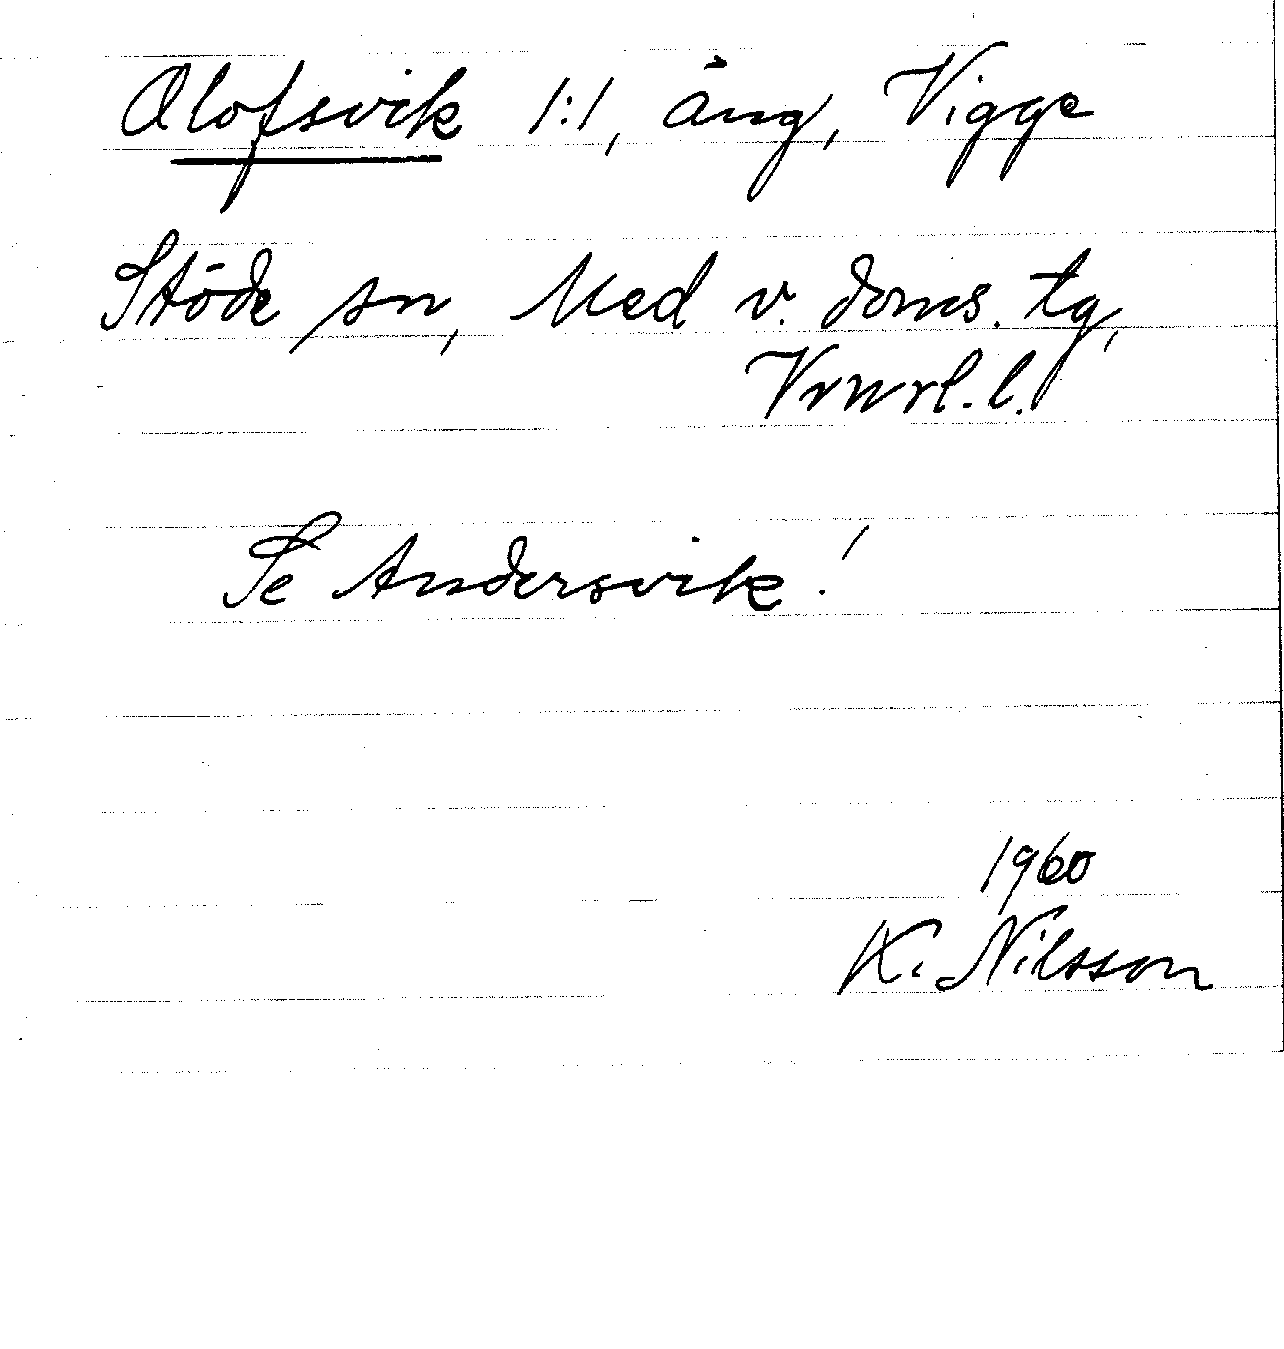 Olofsvik 1:1, äng, Vigge
Stöde sn, Med v. doms. tg,
Vrnrl. l.
Se Andersvik!
1960
K. Nilsson